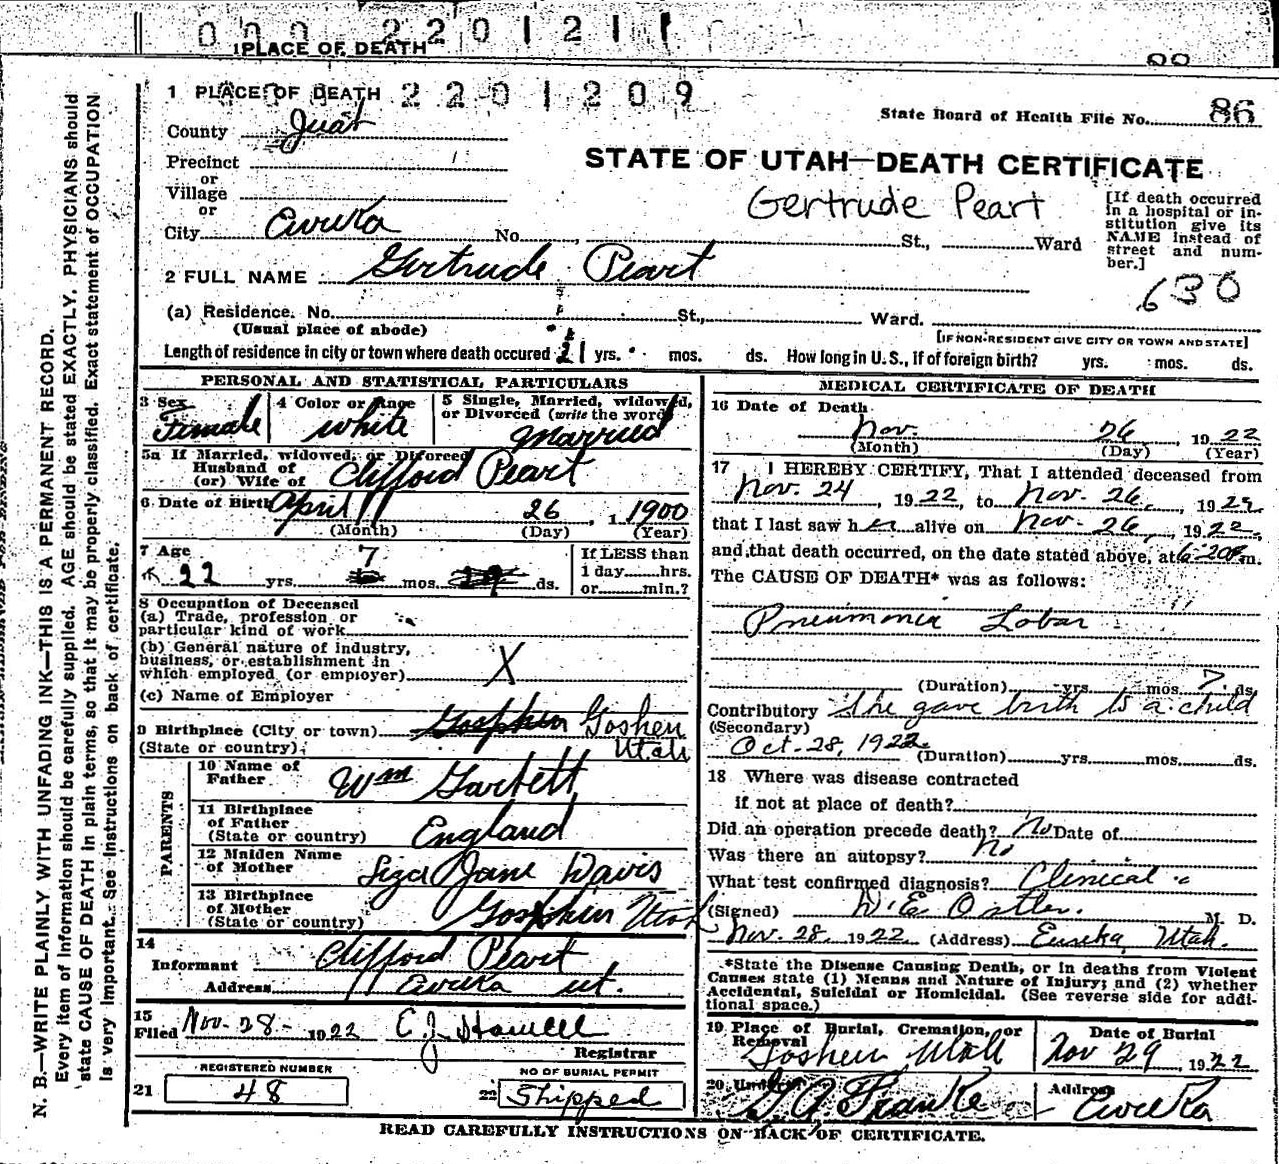 0 0 0 2 2 0 1 2 1 1
1 PLACE OF DEATH
1 PLACE OF DEATH 2 2 0 1 2 0 9
State Board of Health File No. 86
County Juab
Precinct
or
Village
or
City Eureka No. St., Ward
STATE OF UTAH—DEATH CERTIFICATE
Gertrude Peart
[If death occurred in a hospital or in-
stitution give its
NAME instead of
street and num-
ber.]
630
2 FULL NAME Gertrude Peart
(a) Residence. No. St., Ward.
(Usual place of abode)
[IF NON-RESIDENT GIVE CITY OR TOWN AND STATE]
Length of residence in city or town where death occured 21 yrs. mos. ds. How long in U. S., if of foreign birth? yrs. mos. ds.
PERSONAL AND STATISTICAL PARTICULARS
3 Sex
Female
4 Color or Race
White
5 Single, Married, widowed,
or Divorced (write the word)
Married
5a If Married, widowed, or Divorced
Husband of
(or) Wife of Clifford Peart
6 Date of Birth April 26, 1900
(Month) (Day) (Year)
7 Age
22 yrs. 7 mos. ds.
If LESS than
1 day hrs.
or min.?
8 Occupation of Deceased
(a) Trade, profession or
particular kind of work
(b) General nature of industry,
business, or establishment in
which employed (or employer) X
(c) Name of Employer
9 Birthplace (City or town) Goshen
(State or country) Utah
PARENTS
10 Name of
Father Wm Garbett
11 Birthplace
of Father
(State or country) England
12 Maiden Name
of Mother Liza Jane Davis
13 Birthplace
of Mother
(State or country) Goshen Utah
14
Informant Clifford Peart
Address Eureka ut.
15
Filed Nov. 28- 1922 E J Howell
Registrar
REGISTERED NUMBER
21 48
NO OF BURIAL PERMIT
22 Shipped
MEDICAL CERTIFICATE OF DEATH
16 Date of Death
Nov. 26, 1922
(Month) (Day) (Year)
17 I HEREBY CERTIFY, That I attended deceased from
Nov. 24, 1922, to Nov. 26, 1922,
that I last saw her alive on Nov. 26, 1922,
and that death occurred, on the date stated above, at 6-20P m.
The CAUSE OF DEATH* was as follows:
Pneumonia Lobar
(Duration) yrs mos 7 ds
Contributory She gave birth to a child
(Secondary)
Oct. 28, 1922 (Duration) yrs. mos. ds.
18 Where was disease contracted
if not at place of death?
Did an operation precede death? No Date of
Was there an autopsy? No
What test confirmed diagnosis? Clinical
(Signed) D. E. Ostler. M. D.
Nov. 28 1922 (Address) Eureka, Utah.
*State the Disease Causing Death, or in deaths from Violent
Causes state (1) Means and Nature of Injury; and (2) whether
Accidental, Suicidal or Homicidal. (See reverse side for addi-
tional space.)
19 Place of Burial, Cremation, or
Removal
Goshen Utah
Date of Burial
Nov 29, 1922
20
G A Franke
Address
Eureka
READ CAREFULLY INSTRUCTIONS ON BACK OF CERTIFICATE.
N. B.—WRITE PLAINLY WITH UNFADING INK—THIS IS A PERMANENT RECORD.
Every item of information should be carefully supplied. AGE should be stated EXACTLY. PHYSICIANS should
state CAUSE OF DEATH in plain terms, so that it may be properly classified. Exact statement of OCCUPATION
is very important. See instructions on back of certificate.